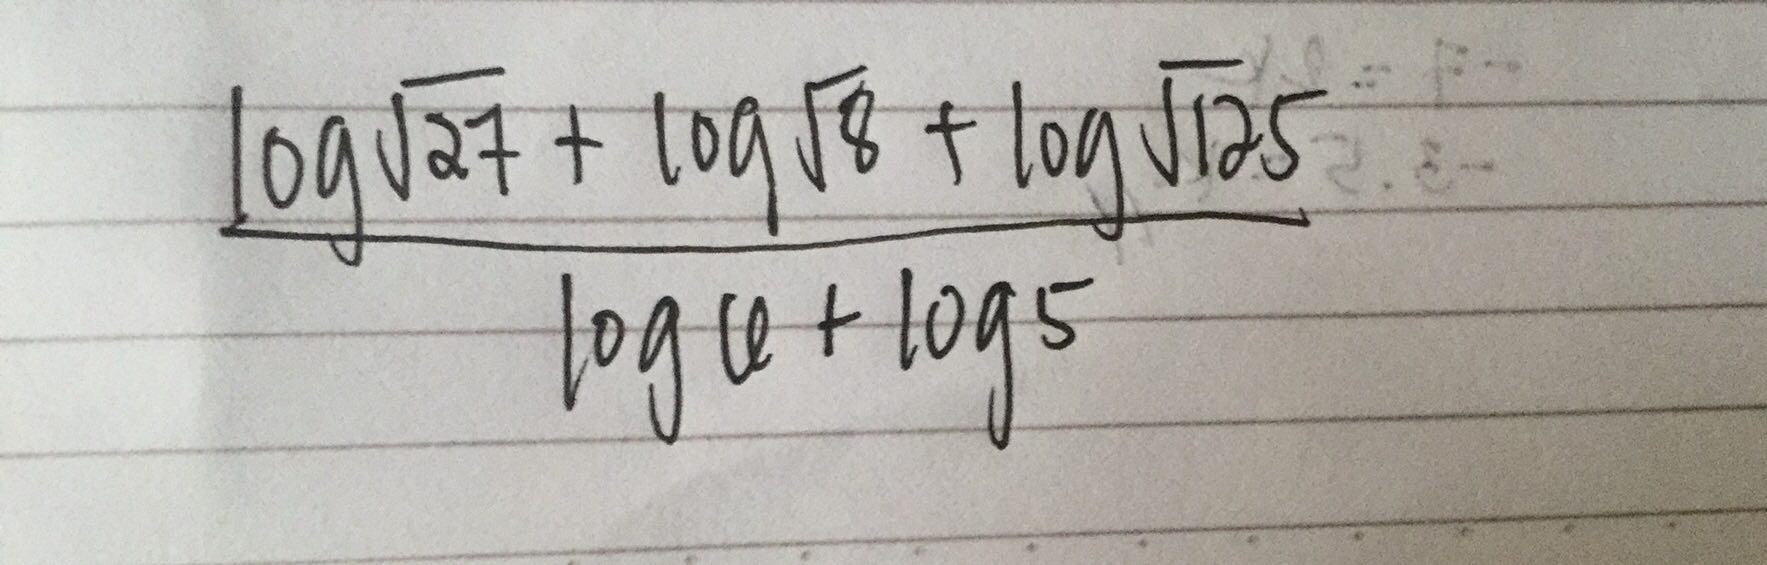 log√27 + log√8 + log√125
log 6 + log 5